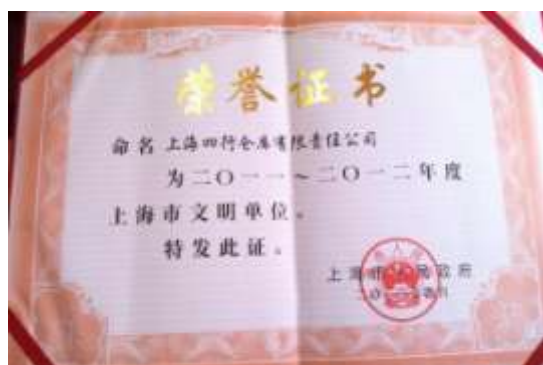 荣誉证书
命名 上海四行仓库有限责任公司
为二〇一一～二〇一二年度
上海市文明单位。
特发此证。
上海市人民政府